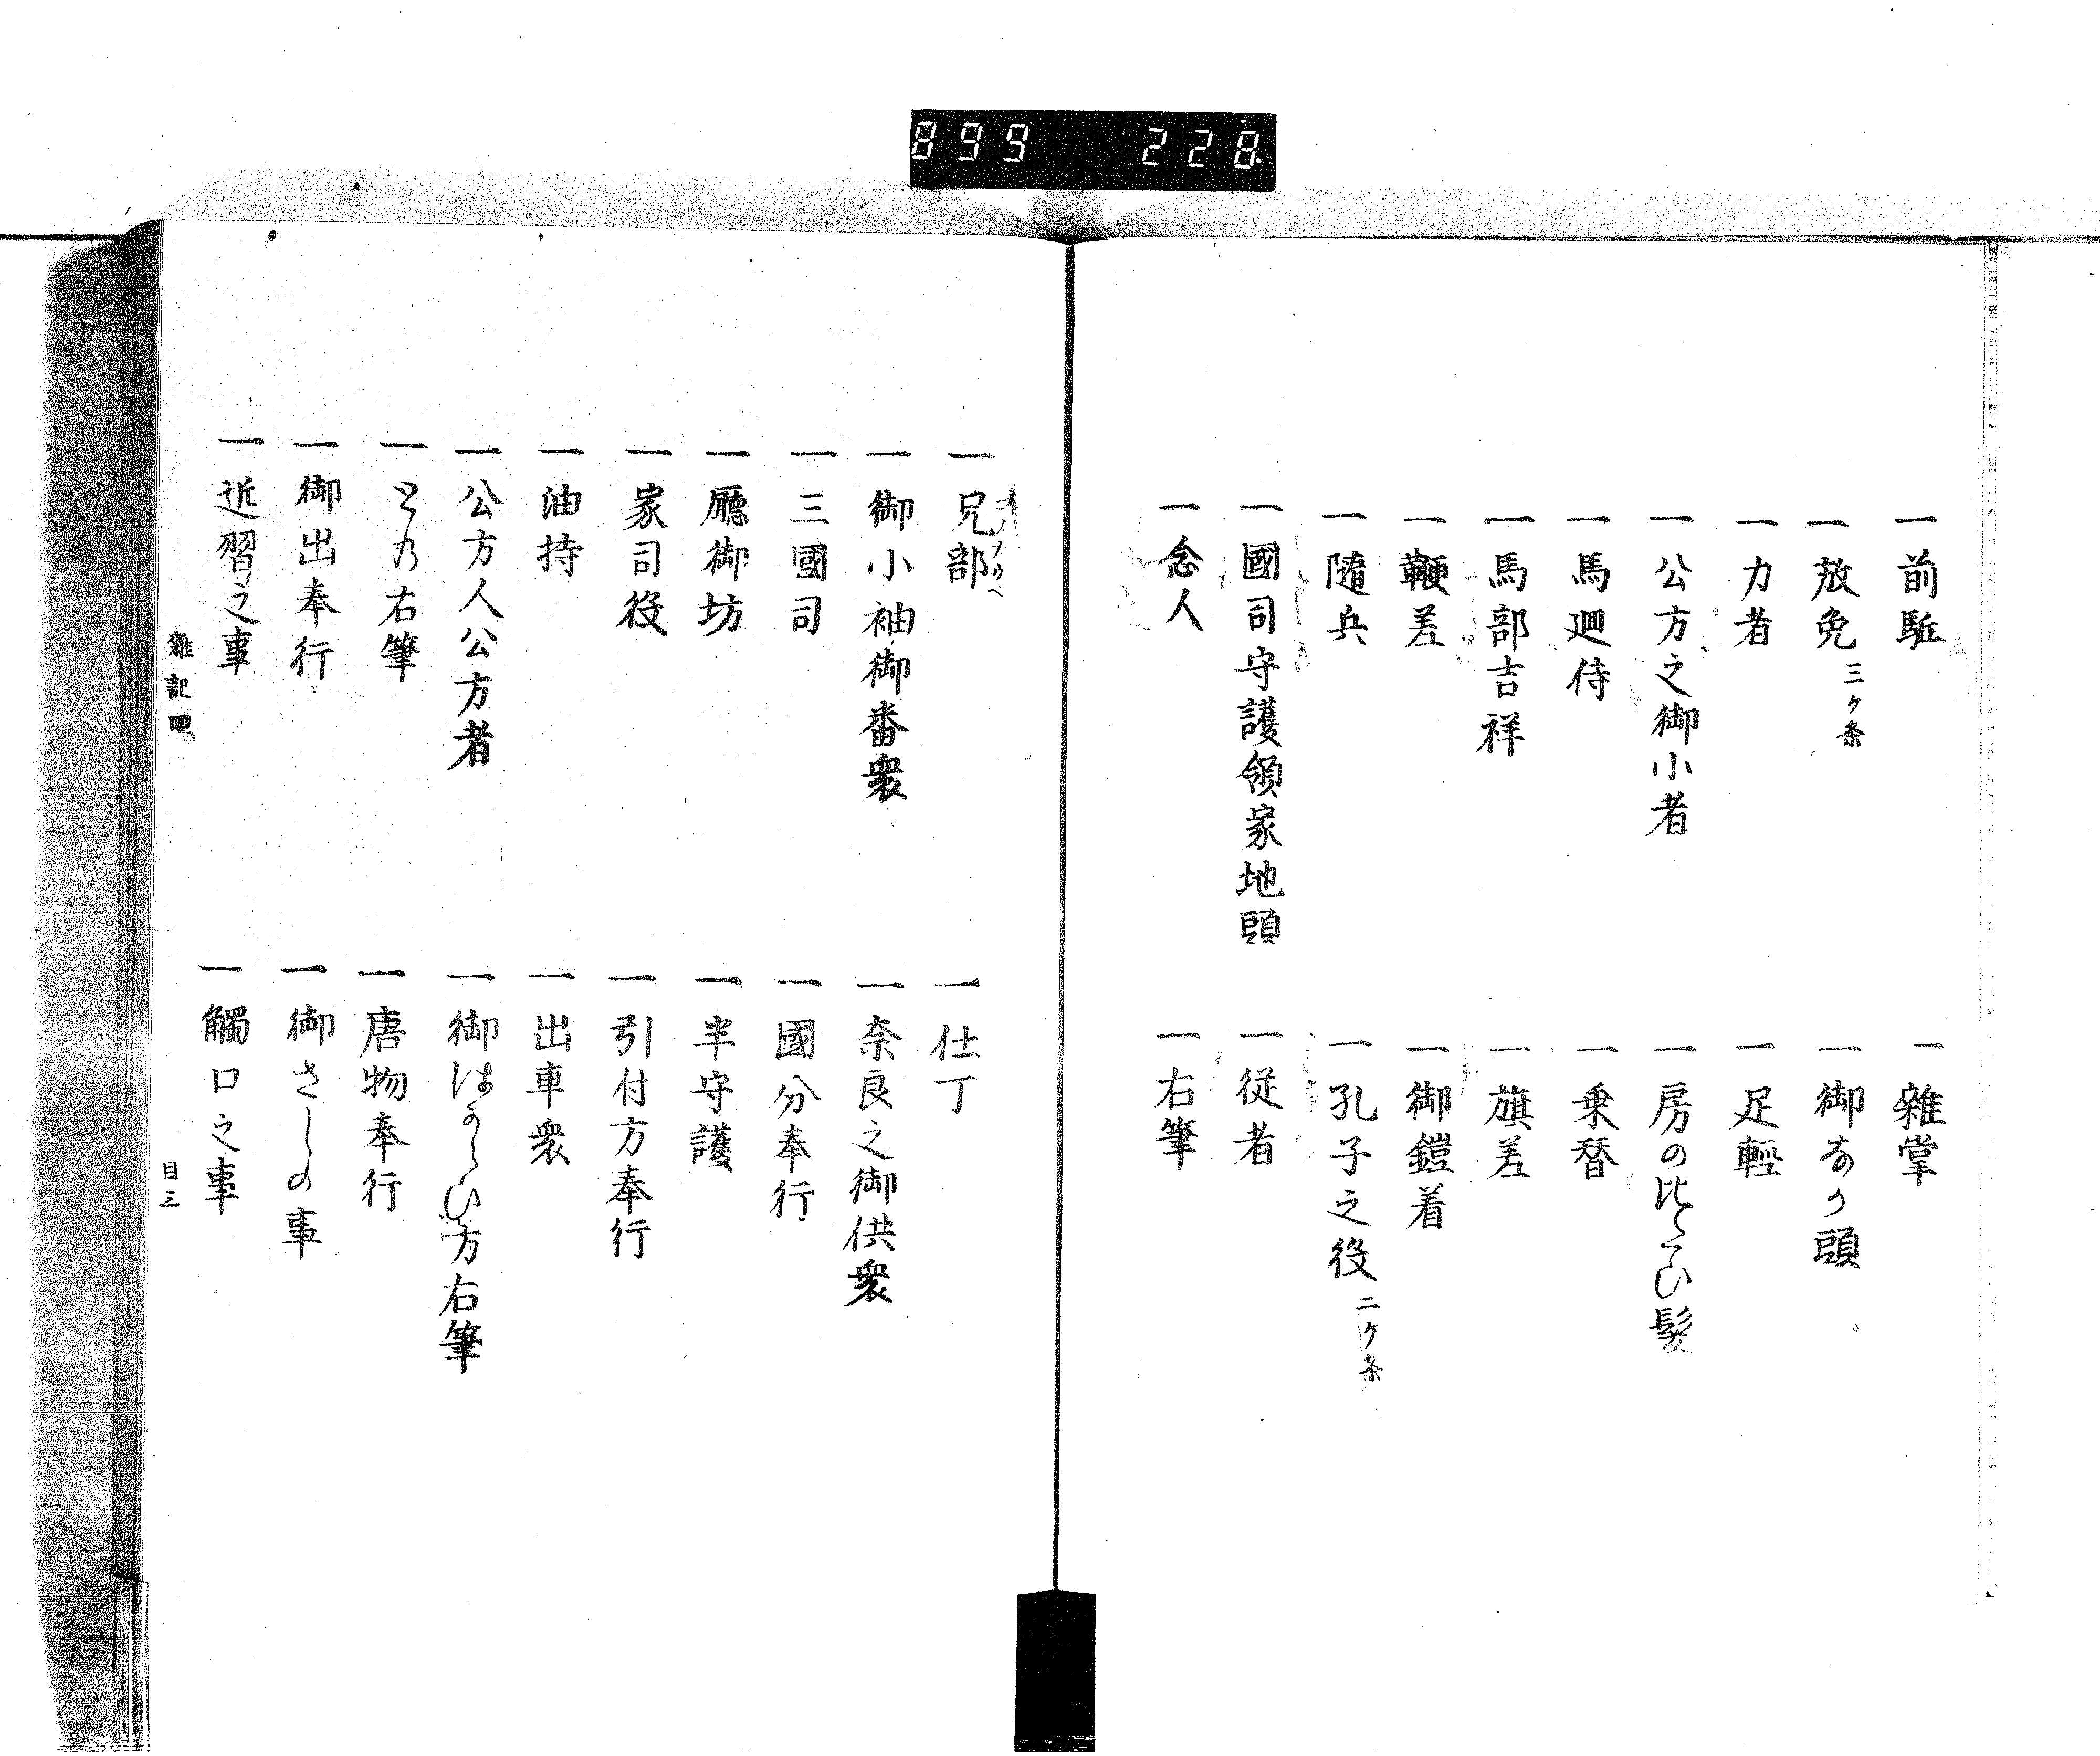 899 228
一前駈
一雜掌
一放免 三ケ条
一御あつ頭
一力者
一足輕
一公方之御小者
一房の比くひ髪
一馬廻侍
一乗替
一馬部吉祥
一旗差
一鞭差
一御鎧着
一隨兵
一孔子之役 二ケ条
一國司守護領家地頭
一従者
一念人
一右筆
一兄部
一仕丁
一御小袖御番衆
一奈良之御供衆
一三國司
一國分奉行
一廳御坊
一半守護
一家司役
一引付方奉行
一油持
一出車衆
一公方人公方者
一御はからひ方右筆
一との右筆
一唐物奉行
一御出奉行
一御さしの事
一近習之事
一觸口之事
雜記四
目三